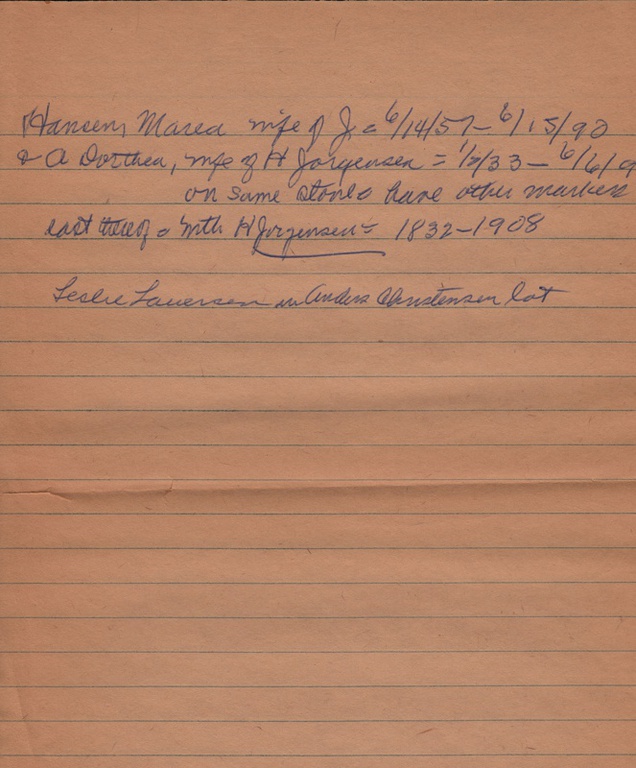 Hansen, Marea wife of J = 6/14/57 - 6/15/92
& A Dorthea, wife of H Jorgensen = 1/3/33 - 6/6/9
on same stone & have other marker
east thereof = with H Jorgensen = 1832-1908
Leslie Lauersen in Anders Christensen lot